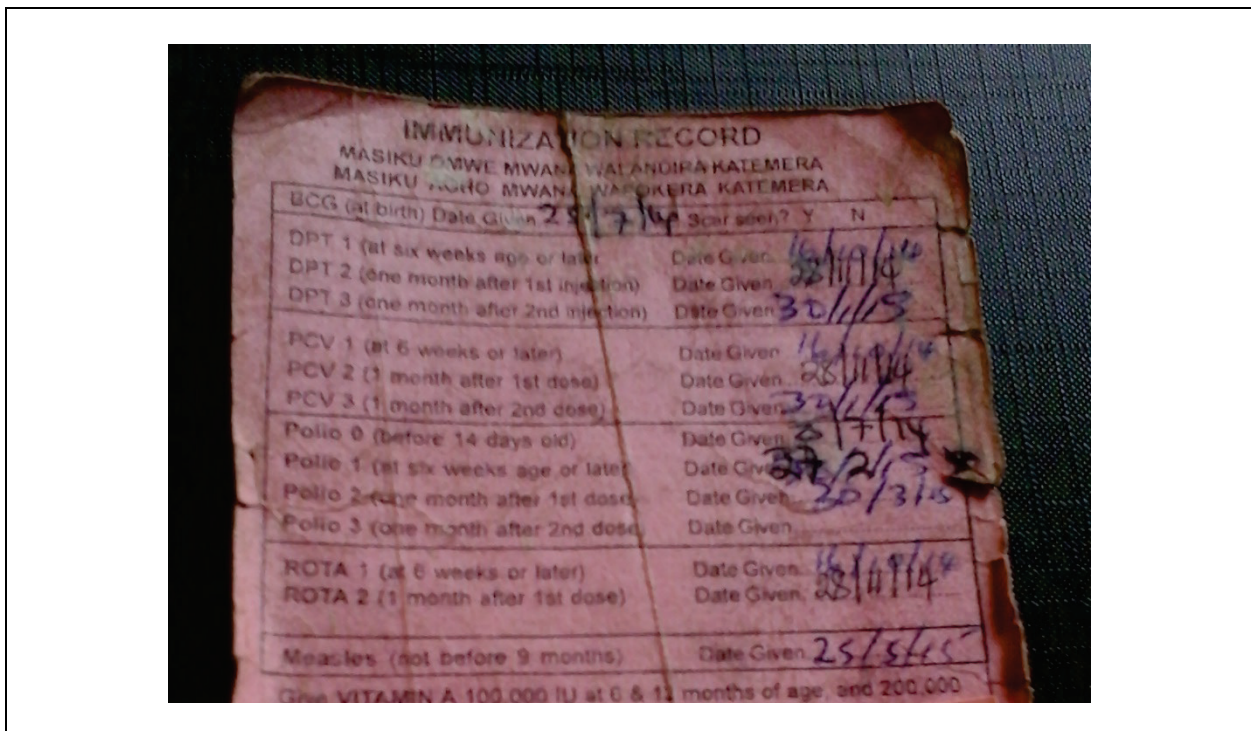 IMMUNIZATION RECORD
MASIKU OMWE MWANA WALANDIRA KATEMERA
MASIKU MWANA WAPOKERA KATEMERA
BCG (at birth) Date Given 28/7/14 Scar seen? Y N
DPT 1 (at six weeks age or later Date Given
DPT 2 (one month after 1st injection) Date Given 28/11/14
DPT 3 (one month after 2nd injection) Date Given 30/1/15
PCV 1 (at 6 weeks or later) Date Given
PCV 2 (1 month after 1st dose) Date Given 28/11/14
PCV 3 (1 month after 2nd dose) Date Given 30/1/15
Polio 0 (before 14 days old) Date Given
Polio 1 (at six weeks age or later Date Given
Polio 2 (one month after 1st dose Date Given 30/3/15
Polio 3 (one month after 2nd dose) Date Given
ROTA 1 (at 6 weeks or later) Date Given
ROTA 2 (1 month after 1st dose) Date Given 28/11/14
Measles (not before 9 months) Date Given 25/5/15
Give VITAMIN A 100,000 IU at 6 & 12 months of age, and 200,000